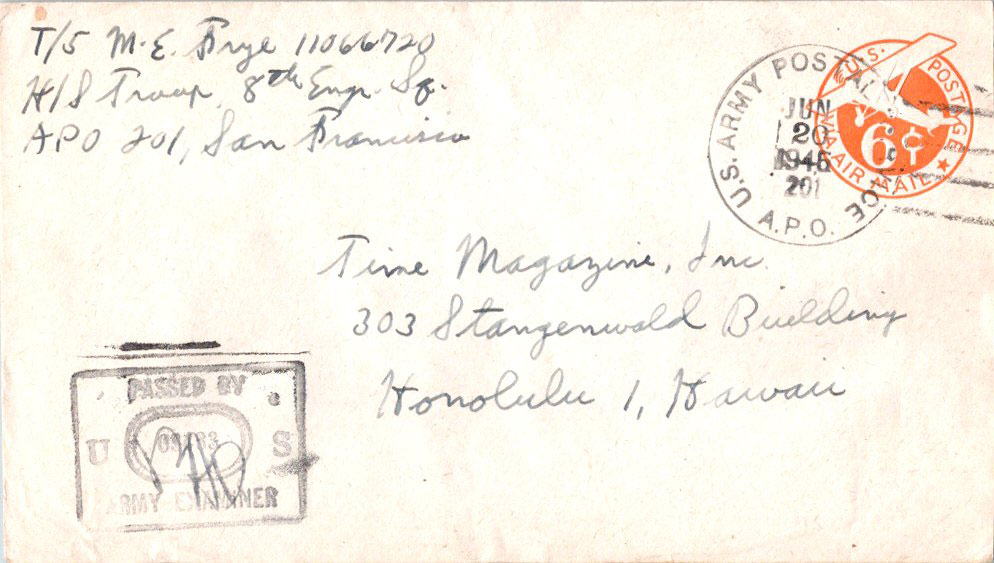 T/5 M. E. Frye 11066720
H/S Troop, 8th Engr. Sq.
APO 201, San Francisco
U.S. ARMY POSTAL
A.P.O.
JUN
20
1945
201
U.S. POSTAGE
6¢
VIA AIR MAIL
Time Magazine, Inc.
303 Stangenwald Building
Honolulu 1, Hawaii
PASSED BY
U S
ARMY EXAMINER